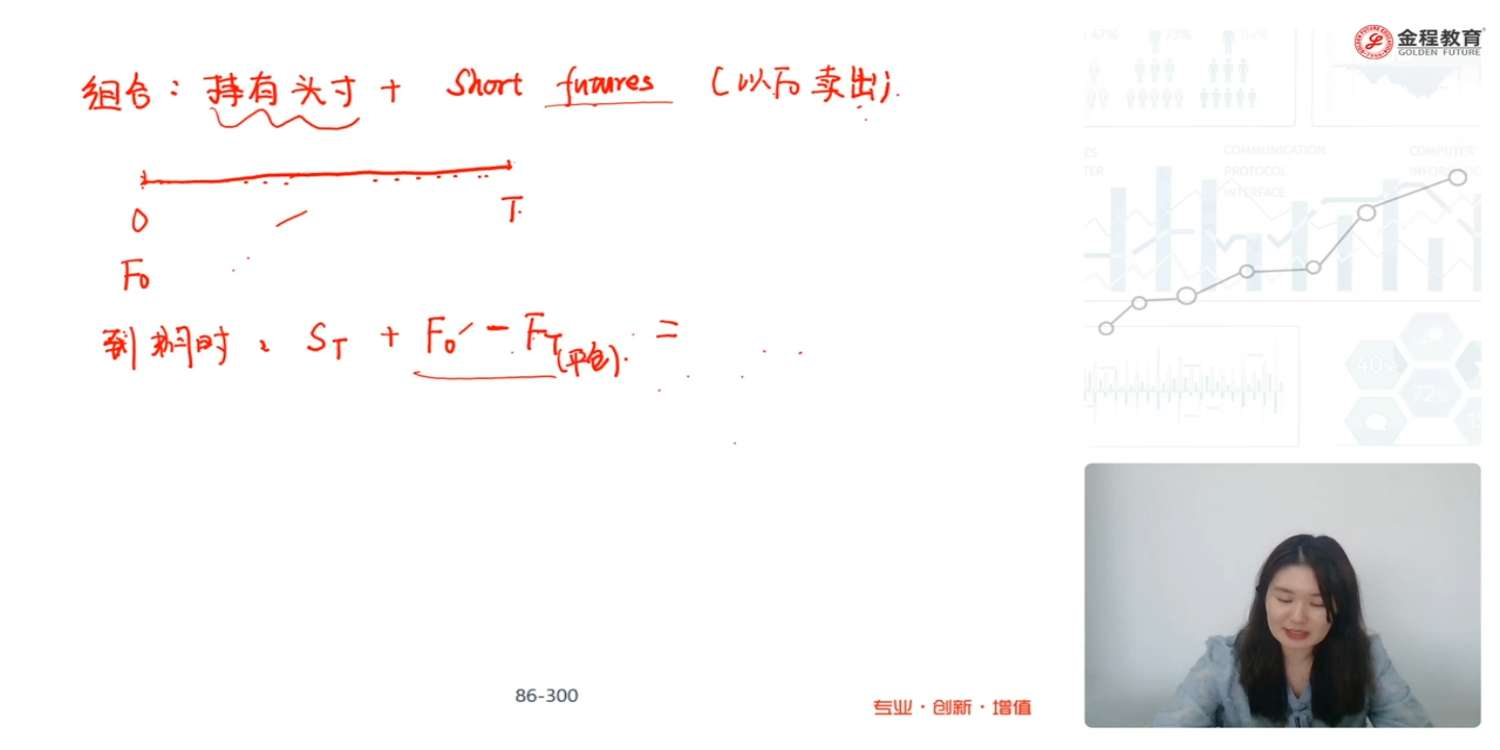 金程教育
GOLDEN FUTURE
组合：持有头寸 + Short futures （以后卖出）.
0
T.
F₀
到期时： S_T + F₀ - F_T (平仓). =
COMMUNICATION
PROTOCOL
INTERFACE
40%
72%
86-300
专业·创新·增值